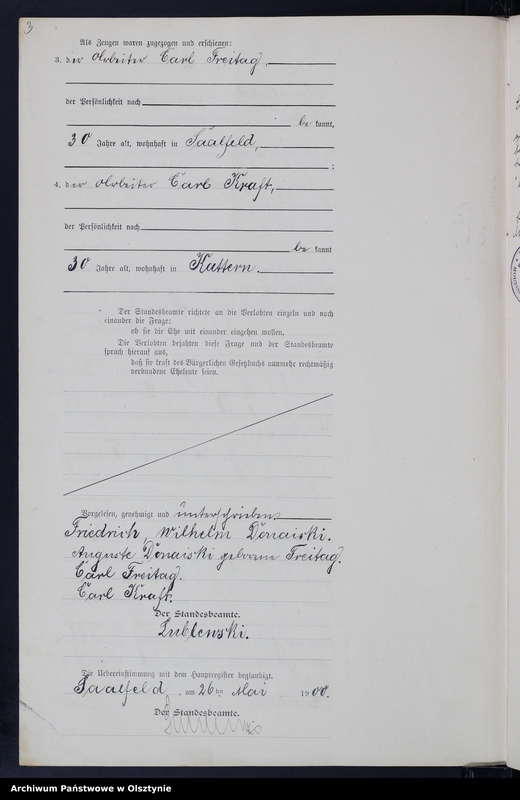 3
Als Zeugen waren zugezogen und erschienen:
3. der Arbeiter Carl Freitag,
der Persönlichkeit nach
be kannt,
30 Jahre alt, wohnhaft in Saalfeld,
;
4. der Arbeiter Carl Kraft,
der Persönlichkeit nach
be kannt
30 Jahre alt, wohnhaft in Kattern.
Der Standesbeamte richtete an die Verlobten einzeln und nach
einander die Frage:
ob sie die Ehe mit einander eingehen wollen.
Die Verlobten bejahten diese Frage und der Standesbeamte
sprach hierauf aus,
daß sie kraft des Bürgerlichen Gesetzbuchs nunmehr rechtmäßig
verbundene Eheleute seien.
Vorgelesen, genehmigt und unterschrieben
Friedrich Wilhelm Donaiski.
Auguste Donaiski geborene Freitag.
Carl Freitag.
Carl Kraft.
Der Standesbeamte.
Lublewski.
Die Uebereinstimmung mit dem Hauptregister beglaubigt.
Saalfeld, am 26ten Mai 1900.
Der Standesbeamte.
Archiwum Państwowe w Olsztynie